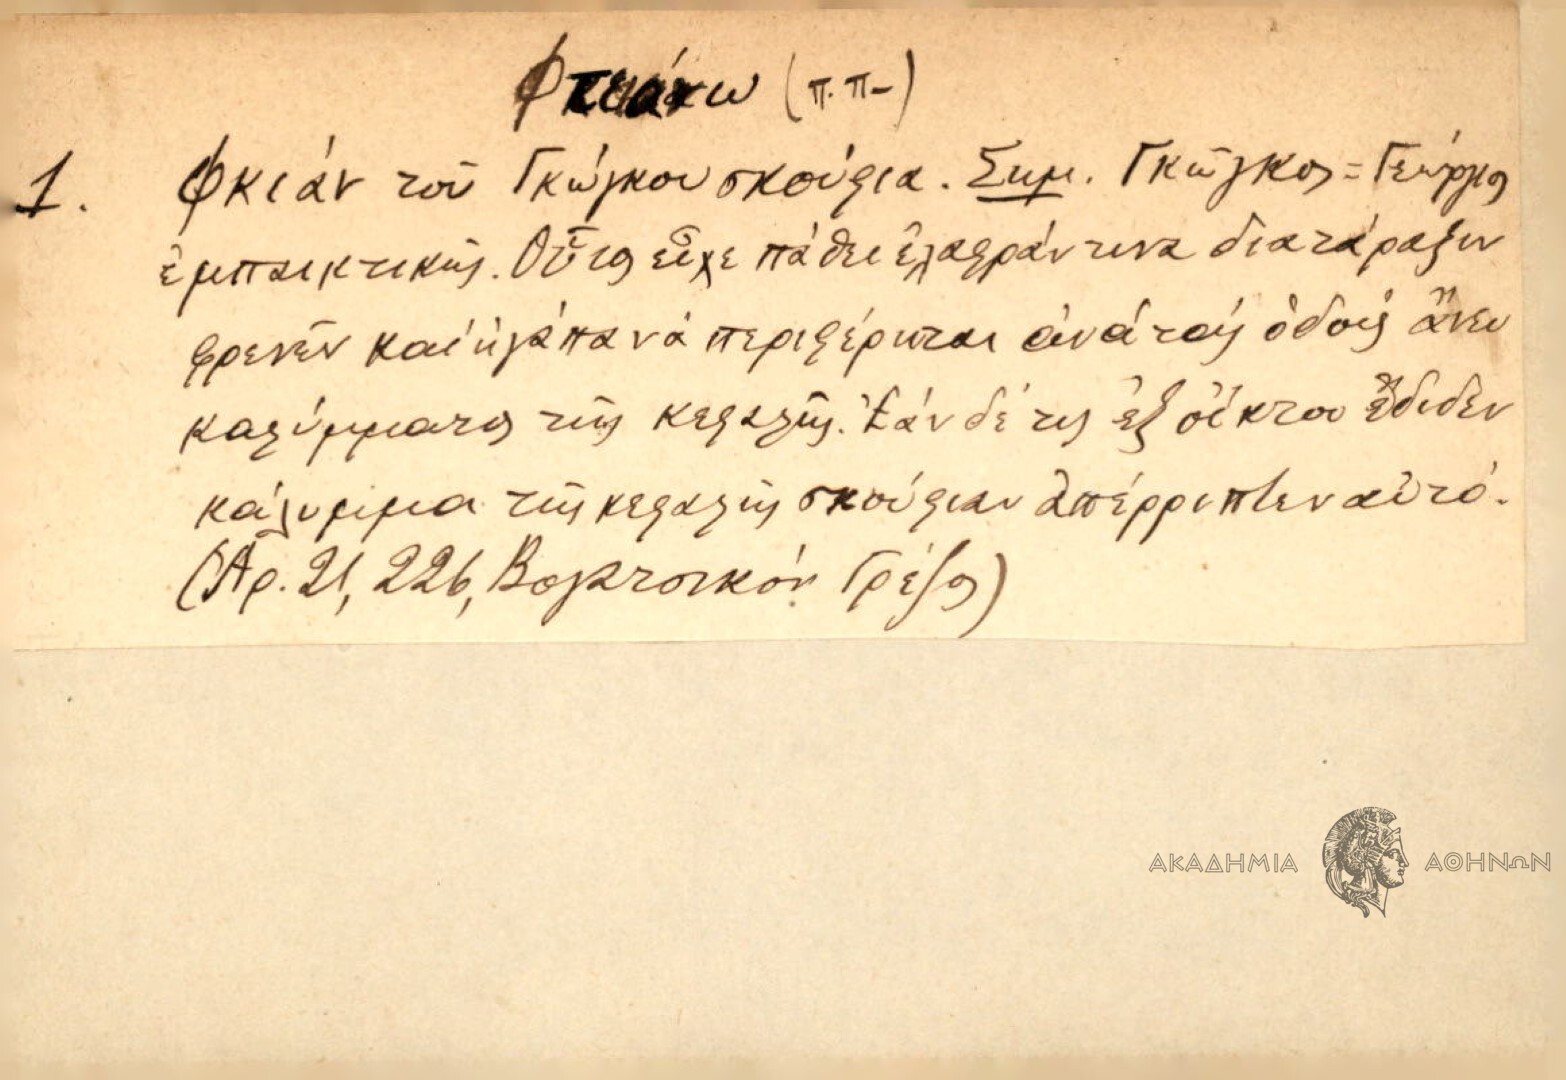 Φτειάνω (π. π–)
1. Φκιάν τοῦ Γκώγκου σκούφια. Σημ. Γκῶγκος = Γεώργιος
ἐμπαικτικῶς. Οὗτος εἶχε πάθει ἐλαφράν τινα διατάραξιν
φρενῶν καὶ ἠγάπα νὰ περιφέρηται ἀνὰ τὰς ὁδοὺς ἄνευ
καλύμματος τῆς κεφαλῆς. Ἐὰν δέ τις ἐξ οἴκτου ἔδιδεν
κάλυμμα τῆς κεφαλῆς σκούφιαν ἀπέρριπτεν αὐτό.
(Ἀρ. 21, 226, Βογατσικόν Γρέζος)
ΑΚΑΔΗΜΙΑ ΑΘΗΝΩΝ